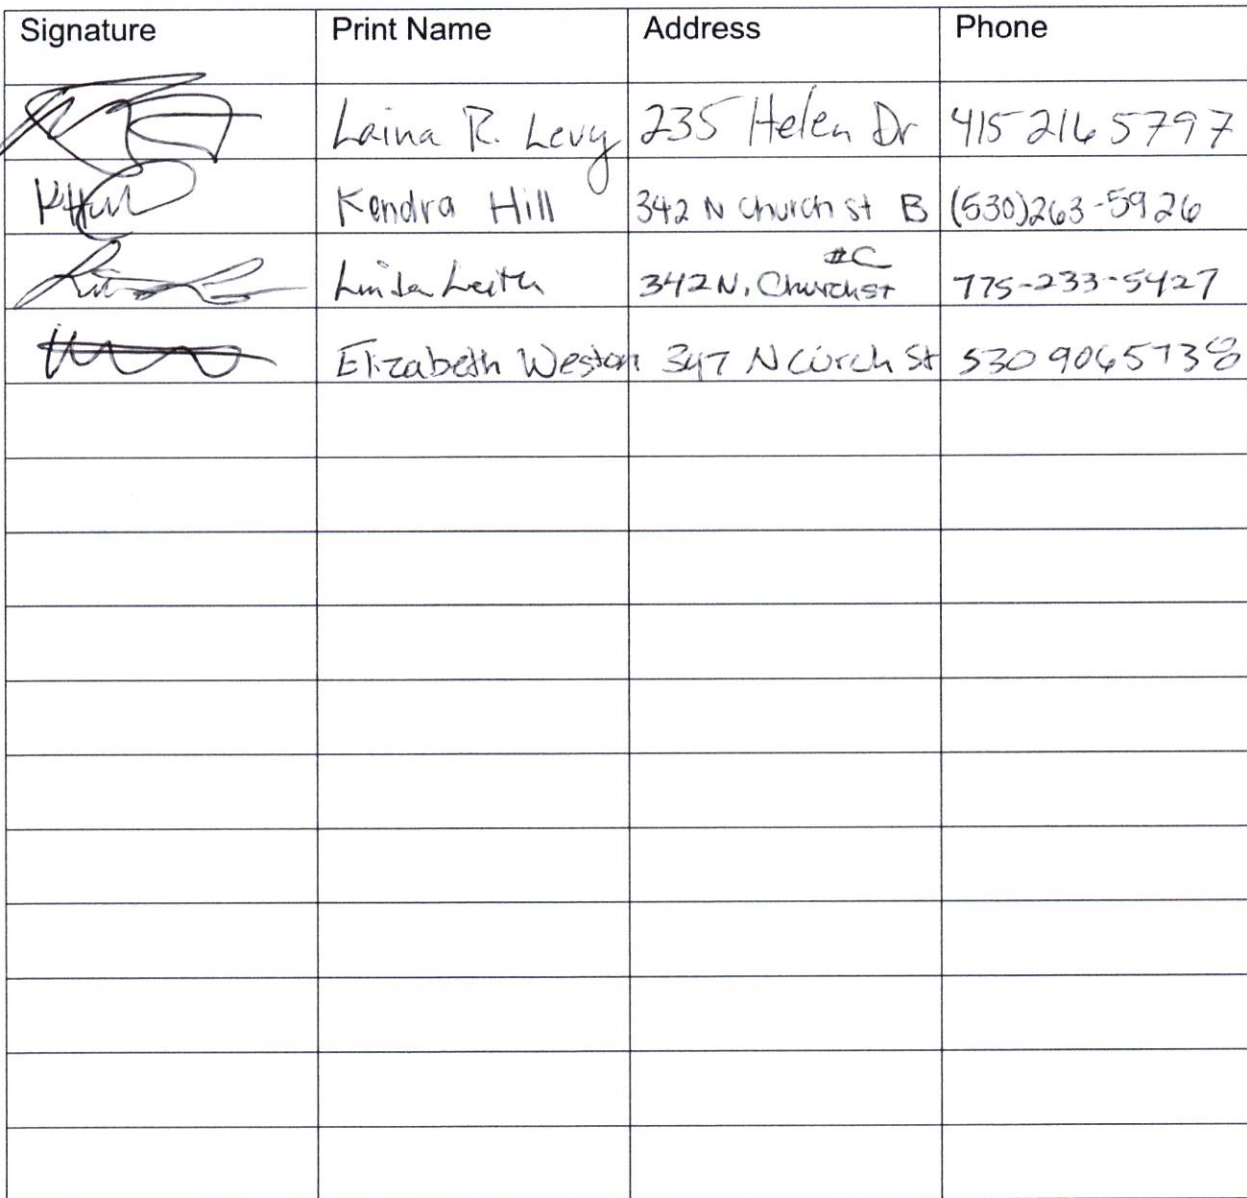 Signature Print Name Address Phone
Laina R. Levy 235 Helen Dr 415 216 5797
Kendra Hill 342 N Church st B (530)263-5926
#C
Linda Leith 342 N. Church st 775-233-5427
Elizabeth Weston 347 N Curch St 530 906 5738